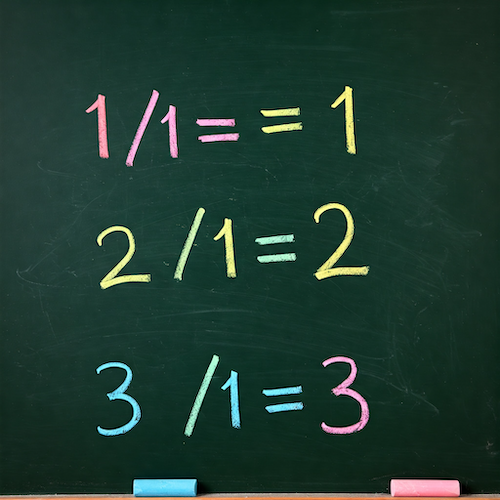 1/1 = = 1
2/1 = 2
3/1 = 3